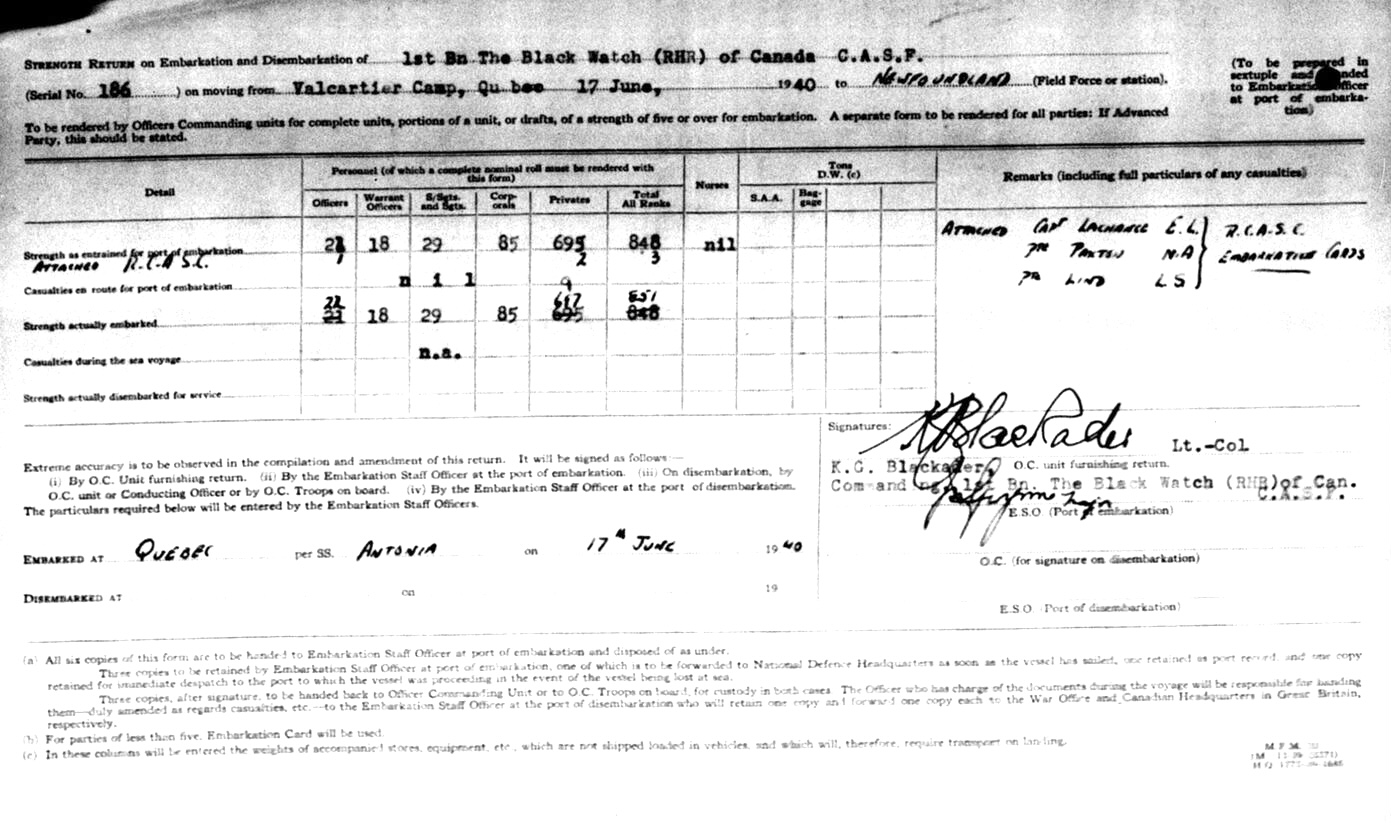 STRENGTH RETURN on Embarkation and Disembarkation of 1st Bn The Black Watch (RHR) of Canada C.A.S.F.
(Serial No. 186 ) on moving from Valcartier Camp, Qu bec 17 June, 1940 to NEWFOUNDLAND (Field Force or station).
(To be prepared in
sextuple and handed
to Embarkation Officer
at port of embarka-
tion)
To be rendered by Officers Commanding units for complete units, portions of a unit, or drafts, of a strength of five or over for embarkation. A separate form to be rendered for all parties: If Advanced
Party, this should be stated.
Detail
Personnel (of which a complete nominal roll must be rendered with
this form)
Officers
Warrant
Officers
S/Sgts.
and Sgts.
Corp-
orals
Privates
Total
All Ranks
Nurses
Tons
D.W. (c)
S.A.A.
Bag-
gage
Remarks (including full particulars of any casualties)
Strength as entrained for port of embarkation 21 18 29 85 695 848 nil
ATTACHED R.C.A.S.C. 1 2 3
Casualties en route for port of embarkation n i l
22 697 851
Strength actually embarked 21 18 29 85 695 848
Casualties during the sea voyage n.a.
Strength actually disembarked for service
ATTACHED CAPT LACHANCE E.L. R.C.A.S.C.
PTE PAXTON N.A EMBARKATION CARDS
PTE LIND L S
Extreme accuracy is to be observed in the compilation and amendment of this return. It will be signed as follows:—
(i) By O.C. Unit furnishing return. (ii) By the Embarkation Staff Officer at the port of embarkation. (iii) On disembarkation, by
O.C. unit or Conducting Officer or by O.C. Troops on board. (iv) By the Embarkation Staff Officer at the port of disembarkation.
The particulars required below will be entered by the Embarkation Staff Officers.
EMBARKED AT QUEBEC per SS. ANTONIA on 17th JUNE 1940
DISEMBARKED AT on 19
Signatures: K Blackader Lt.-Col
K.G. Blackader, O.C. unit furnishing return.
Command ng 1st Bn. The Black Watch (RHR)of Can.
C.A.S.F.
E.S.O. (Port of embarkation)
O.C. (for signature on disembarkation)
E.S.O. (Port of disembarkation)
(a) All six copies of this form are to be handed to Embarkation Staff Officer at port of embarkation and disposed of as under.
Three copies to be retained by Embarkation Staff Officer at port of embarkation, one of which is to be forwarded to National Defence Headquarters as soon as the vessel has sailed, one retained as port record, and one copy
retained for immediate despatch to the port to which the vessel was proceeding in the event of the vessel being lost at sea.
Three copies, after signature, to be handed back to Officer Commanding Unit or to O.C. Troops on board, for custody in both cases. The Officer who has charge of the documents during the voyage will be responsible for handing
them—duly amended as regards casualties, etc.—to the Embarkation Staff Officer at the port of disembarkation who will retain one copy and forward one copy each to the War Office and Canadian Headquarters in Great Britain,
respectively.
(b) For parties of less than five, Embarkation Card will be used.
(c) In these columns will be entered the weights of accompanied stores, equipment, etc., which are not shipped loaded in vehicles, and which will, therefore, require transport on landing.
M.F.M.
H.Q. 1772-39-1685